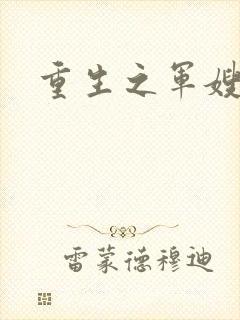 重生之军嫂
雷蒙德穆迪